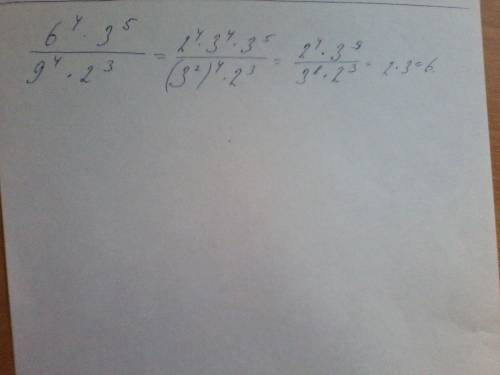 \frac{6^4 \cdot 3^5}{9^4 \cdot 2^3} = \frac{2^4 \cdot 3^4 \cdot 3^5}{(3^2)^4 \cdot 2^3} = \frac{2^4 \cdot 3^9}{3^8 \cdot 2^3} = 2 \cdot 3 = 6.